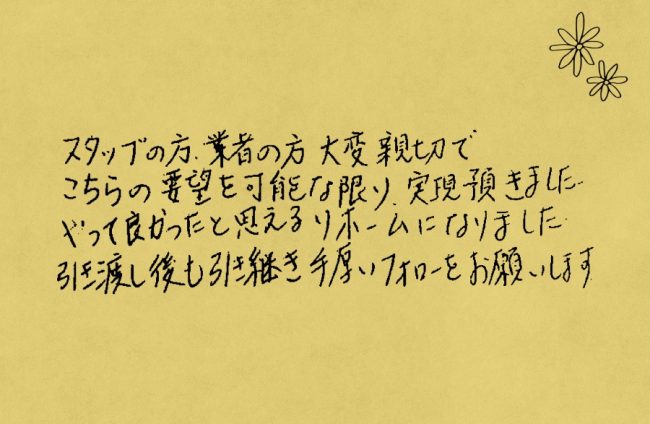 スタッフの方、業者の方 大変親切で
こちらの要望を可能な限り、実現頂きました
やって良かったと思えるリホームになりました
引き渡し後も引き継き手厚いフォローをお願いします